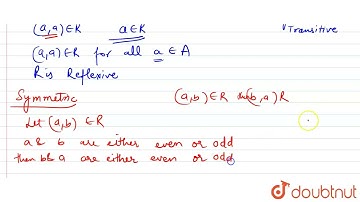 (a,a)∈R a∈R "Transitive
(a,a)∈R for all a ∈ A
R is Reflexive
Symmetric (a,b)∈R (b,a)R
Let (a,b) ∈R
a & b are either even or odd
then b& a are either even or odd
doubtnut